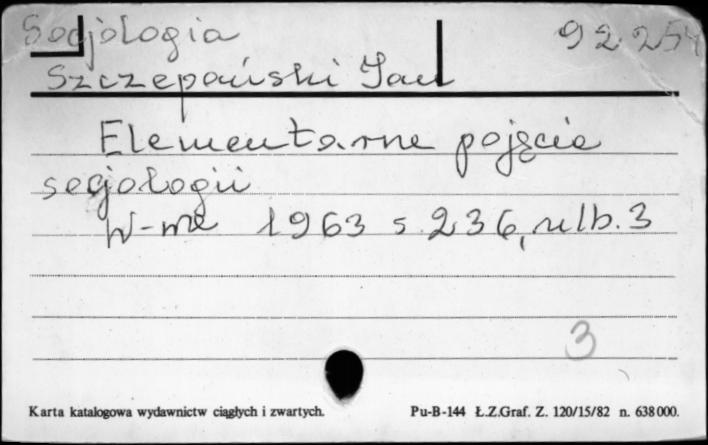 Socjologia 92 254
Szczepański Jan
Elementarne pojęcia
socjologii
W-wa 1963 s. 236, nlb. 3
3
Karta katalogowa wydawnictw ciągłych i zwartych. Pu-B-144 Ł.Z.Graf. Z. 120/15/82 n. 638 000.